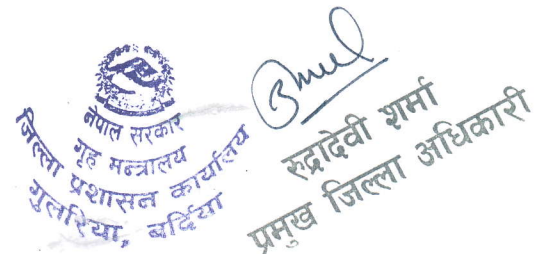 नेपाल सरकार
गृह मन्त्रालय
जिल्ला प्रशासन कार्यालय
गुलरिया, बर्दिया
रुद्रादेवी शर्मा
प्रमुख जिल्ला अधिकारी